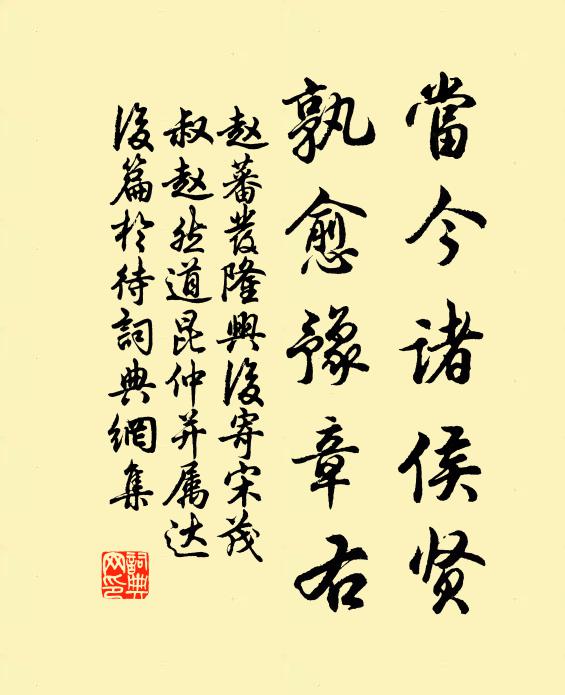 當今诸侯贤
孰愈豫章右
赵蕃發隆興後寄宋茂
叔赵然道昆仲并属达
後篇於待詞典網集
詞典網印